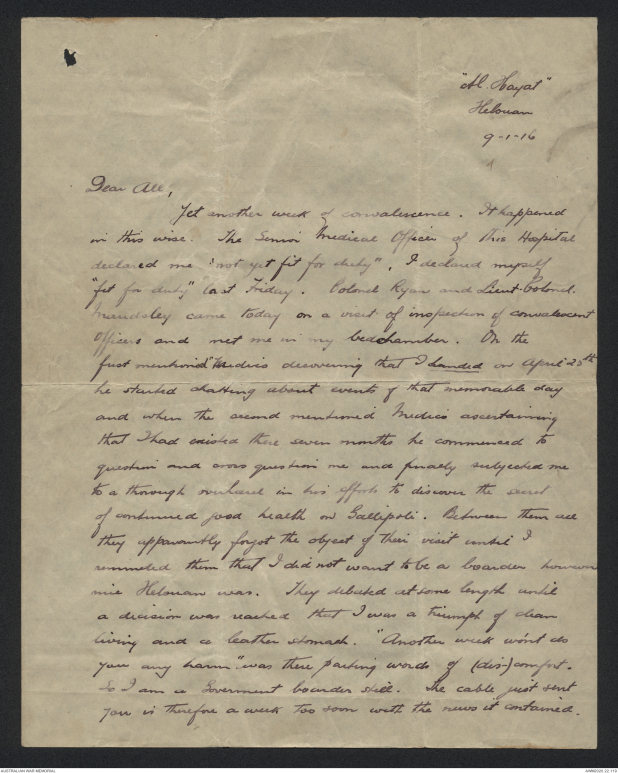 "Al. Hayat"
Helouan
9-1-16
Dear All,
Yet another week of convalescence. It happened
in this wise. The Senior Medical Officer of this Hospital
declared me "not yet fit for duty", I declared myself
"fit for duty" last Friday. Colonel Ryan and Lieut-Colonel.
Maudsley came today on a visit of inspection of convalescent
Officers and met me in my bedchamber. On the
first mentioned Medico discovering that I landed on April 25th
he started chatting about events of that memorable day
and when the second mentioned Medico ascertaining
that I had existed there seven months he commenced to
question and cross question me and finally subjected me
to a thorough overhaul in his efforts to discover the secret
of continued good health on Gallipoli. Between them all
they apparently forgot the object of their visit until I
reminded them that I did not want to be a boarder however
nice Helouan was. They debated at some length until
a decision was reached that I was a triumph of clean
living and a leather stomach. "Another week won't do
you any harm" was there parting words of (dis)comfort.
So I am a Goverment boarder still. The cable just sent
you is therefore a week too soon with the news it contained.
AUSTRALIAN WAR MEMORIAL